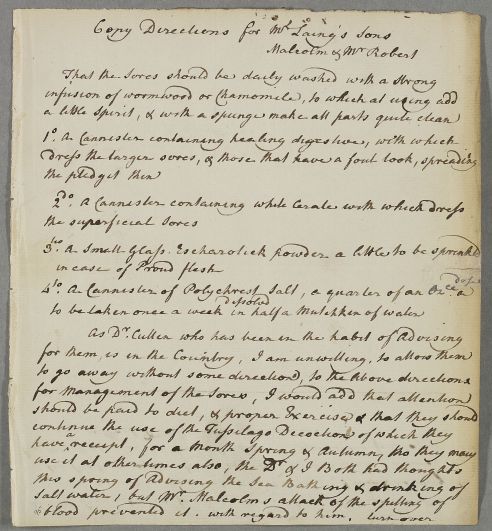 Copy Directions for Mr. Laing's Sons
Malcolm & Mr Robert
That the Sores should be daily washed with a strong
infusion of wormwood or Chamomile, to which at using add
a little Spirit, & with a spunge make all parts quite clean
1o. A Cannister containing healing digestive, with which
dress the larger sores, & those that have a foul look, spreading
the pledgit thin
2do. A Cannister containing white Cerate with which dress
the superficial Sores
3tio. A Small Glass. Escharotick powder a little to be sprinkled
in case of Proud flesh
4to. A Cannister of Polychrest Salt, a quarter of an Once a dose
to be taken once a week dissolved in half a Mutchken of water
As Dr. Cullen who has been in the habit of Advising
for them, is in the Country, I am unwilling, to allow them
to go away without some direction, to the Above directions
for Management of the Sores, I would add that attention
should be paid to diet, & proper Exercise & that they should
continue the use of the Tussilago Decoction of which they
have a receipt, for a Month Spring & Autumn, tho they may
use it at other times also, the Dr. & I Both had thoughts
this spring of Advising the Sea Bathing & drinking of
Salt water, but Mr. Malcolm's attack of the spitting of
blood prevented it. with regard to him. turn over